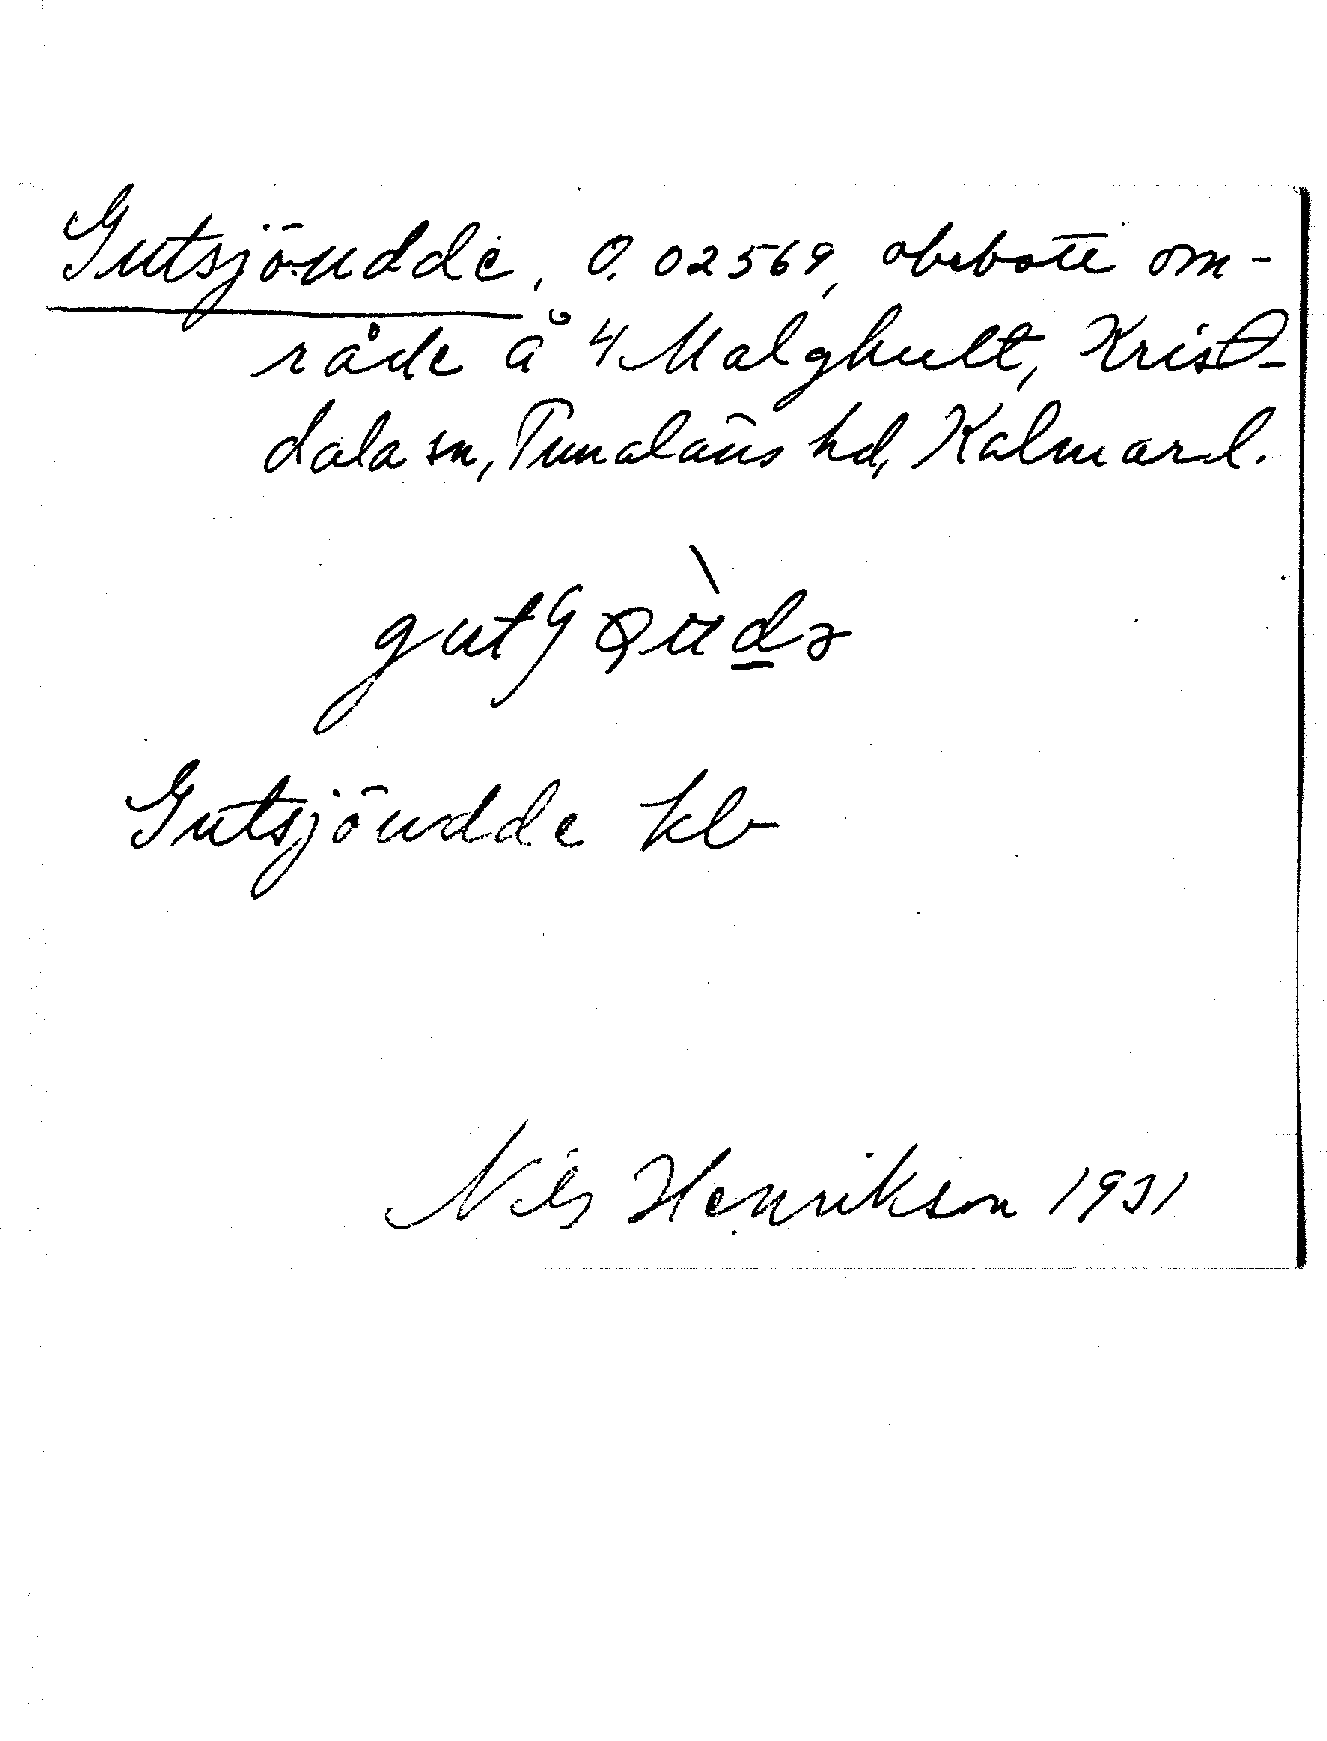 Gutsjöudde, O. 02569, obebott om-
råde å 4 Malghult, Krist-
dala sn, Tunaläns hd, Kalmar l.
Gutsjöudde kb
Nils Henrikson 1931